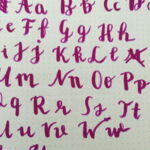 Aa Bb Cc D
e Ff Gg Hh
i Jj Kk Ll
m Nn Oo Pp
q Rr Ss Tt
u Vv Ww